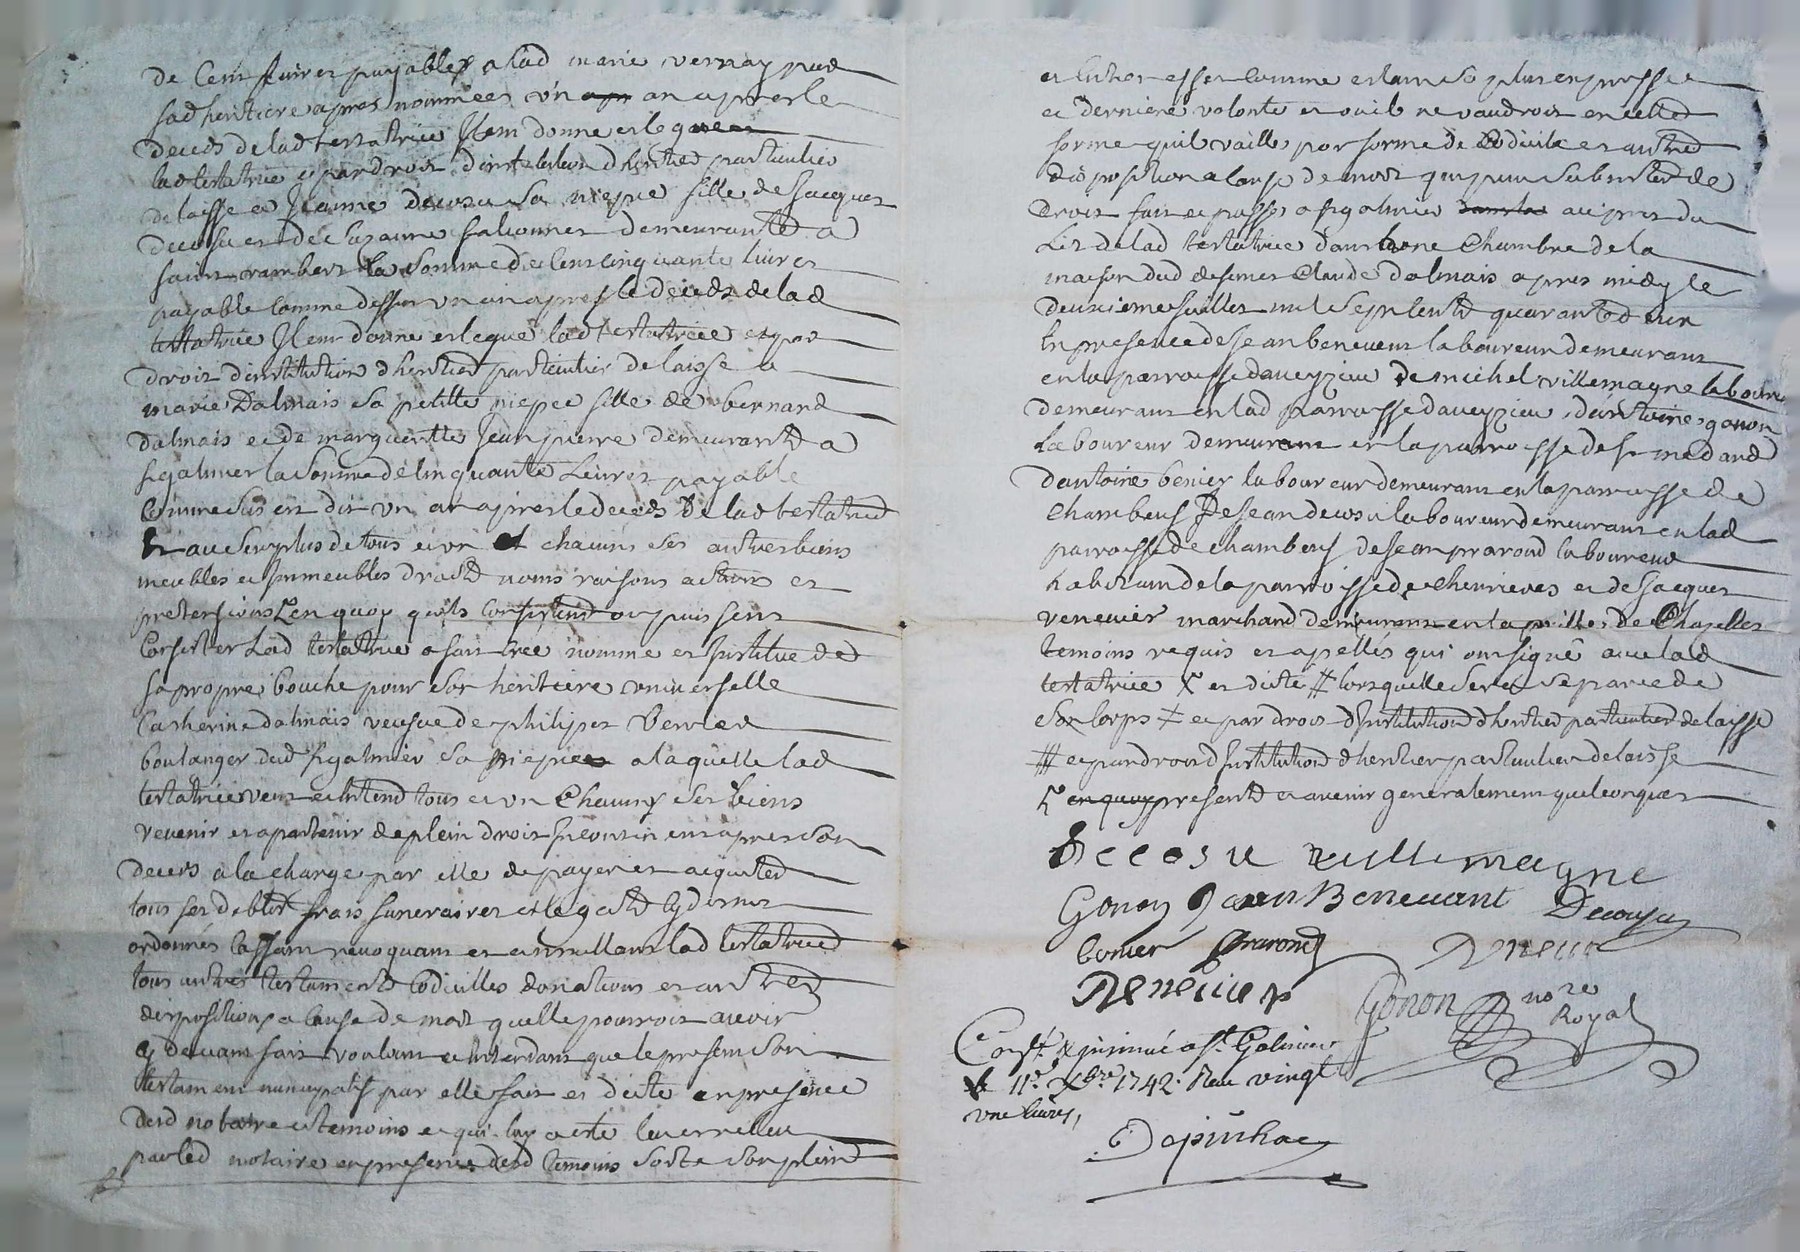 de Cent livres payables a lad marie vernay par
sad heritiere apres nommees un an apres le
deceds de lad testatrice Item donne et legue
lad testatrice et par droit d'institution d'heritier particulier
delaisse a Jeanne decosu sa niepce fille de Jacques
decosu et de Suzanne falconnet demeurante a
saint rambert la somme de cent cinquante livres
payable comme dessus un an apres le deceds de lad
testatrice Item donne et legue lad testatrice et par
droit d'institution d'heritier particulier delaisse a
marie Dalmais sa petitte niepce fille de bernard
dalmais et de margueritte Jeanpierre demeurante a
st galmier la somme de cinquante Livres payable
comme sus est dit un an apres le deceds de lad testatrice
Et au surplus de tous et un et chacuns ses autres biens
meubles et immeubles droits noms raisons actions et
pretensions en quoy qu'ils consistent ou puissent
Consister Lad testatrice a fait cree nomme et institue de
sa propre bouche pour son heritiere universelle
Catherine dalmais veufve de philipes
boulanger dud st galmier sa niepce a laquelle lad
testatrice veut et entend tous et un Chacuns ses biens
revenir et apartenir de plein droit incontinent apres son
deceds a la charge par elle de payer et acquitter
tous ses debtes frais funeraires et legats cy dessus
ordonnés Cassant revoquant et annullant lad testatrice
tous autres testaments Codicilles donations et autres
dispositions a cause de mort quelle pourroit avoir
cy devant fait voulant et entendant que le present soit
testament nuncupatif par elle fait et dicté en presence
dud notaire et temoins et qui luy a esté leu et releu
par led notaire en presence desd temoins sorte son plein
et entier effet comme estant sa plus expresse
et derniere volonté et ou il ne vaudroit en cette
forme quil vaille par forme de Codicile et autre
disposition a cause de mort qui peut subsister de
droit fait et passé a st galmier au pres du
Lit de lad testatrice dans une Chambre de la
maison dud Claude dalmais apres midy le
deuxieme juillet mil sept cent quarante deux
En presence de Jean benevent laboureur demeurant
en la parroisse daveyzieu De michel villemagne laboureur
demeurant en lad parroisse daveyzieu, d'antoine gonon
laboureur demeurant en la parroisse de st medard
d'antoine benier laboureur demeurant en la parroisse de
Chambeuf De Jean decosu laboureur demeurant en lad
parroisse de chambeuf de Jean prarond laboureur
habitant de la parroisse de chevrieres et de Jacques
veneuier marchand demeurant en la ville de Chazelles
temoins requis et apellés qui ont signé avec lad
testatrice et dicté # lorsquelle sera separee de
son corps et par droit d'Institution d'heritier particulier delaisse
# et par droit d'Institution d'heritier particulier delaisse
en quoy presents et avenir generalement quelconques
Decosu villemagne
Gonon Jean Benevant Decosu
benier prarond
Veneuier
Gonon nore
Royal
Conté & insinué a St. Galmier
le 11e Xbre 1742. Reçu vingt
une livres,
Depinhac